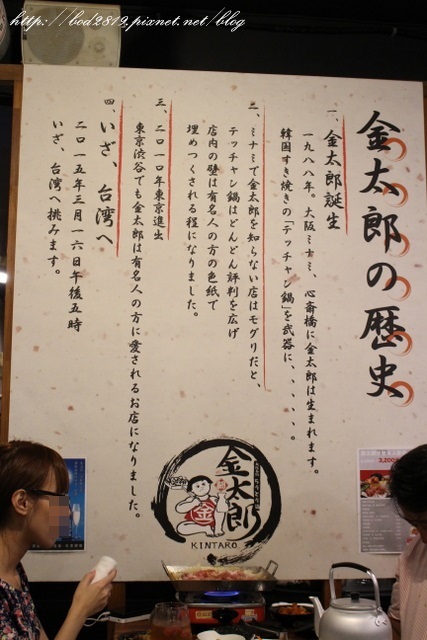 http://bod2819.pixnet.net/blog
金太郎の歴史
一、金太郎誕生
一九八八年。大阪ミナミ、心斎橋に金太郎は生まれます。
韓国すき焼きの「テッチャン鍋」を武器に、、、、、。
二、ミナミで金太郎を知らない店はモグリだと、
テッチャン鍋はどんどん評判を広げ
店内の壁は有名人の方の色紙で
埋めつくされる程になりました。
三、二〇一〇年東京進出
東京渋谷でも金太郎は有名人の方に愛されるお店になりました。
四、いざ、台湾へ
二〇一五年三月一六日午後五時
いざ、台湾へ挑みます。
金太郎
金
KINTARO